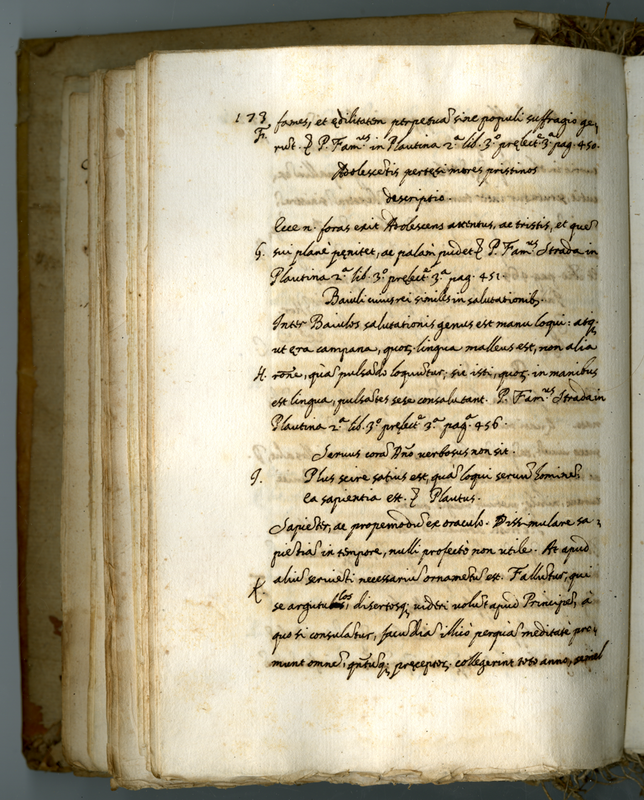 173 fames, et edilitatem perpetuā sine populi suffragio ge,
F. rūt. P. Famus in Plautina 2a lib. 3o prelect. 3a pag. 450.
Adolescētis pertesi mores pristinos
descriptio.
Ecce n. foras exit Adolescens attentus, ac tristis, et quē
G. sui planè penitet, ac palàm pudet P. Famus Strada in
Plautina 2a lib. 3o prelect. 3a pag. 451.
Baiuli cuius rei similes in salutationib;.
Inter Baiulos salutationis genus est manu loqui: atq;
ut era campana, quoȝ lingua malleus est, non alia
H. rōne, quā pulsādo loquūtur, sic isti, quoȝ in manibus
est lingua, pulsātes sese consalutant. P. Famus Strada in
Plautina 2a lib. 3o prelect. 3a pag. 456.
Seruus corā Dn̄o verbosus non sit.
J. Plus scire satius est, quā loqui seruū hominē,
ea sapientia est. Plautus.
Sapiēter, ac propemodū ex oraculo. Dissimulare sa,
piētiā in tempore, nulli profectò non utile. At apud
aliū seruiēti necessariū ornamētū est. Fallūtur, qui
K. se argutulos, disertosq; uidēri volūt apud Principē, à
quo si consulātur, facūdiā illicò perquā meditatè pro,
munt omnē, qn̄tūq; preceptoȝ collegerint toto anno,